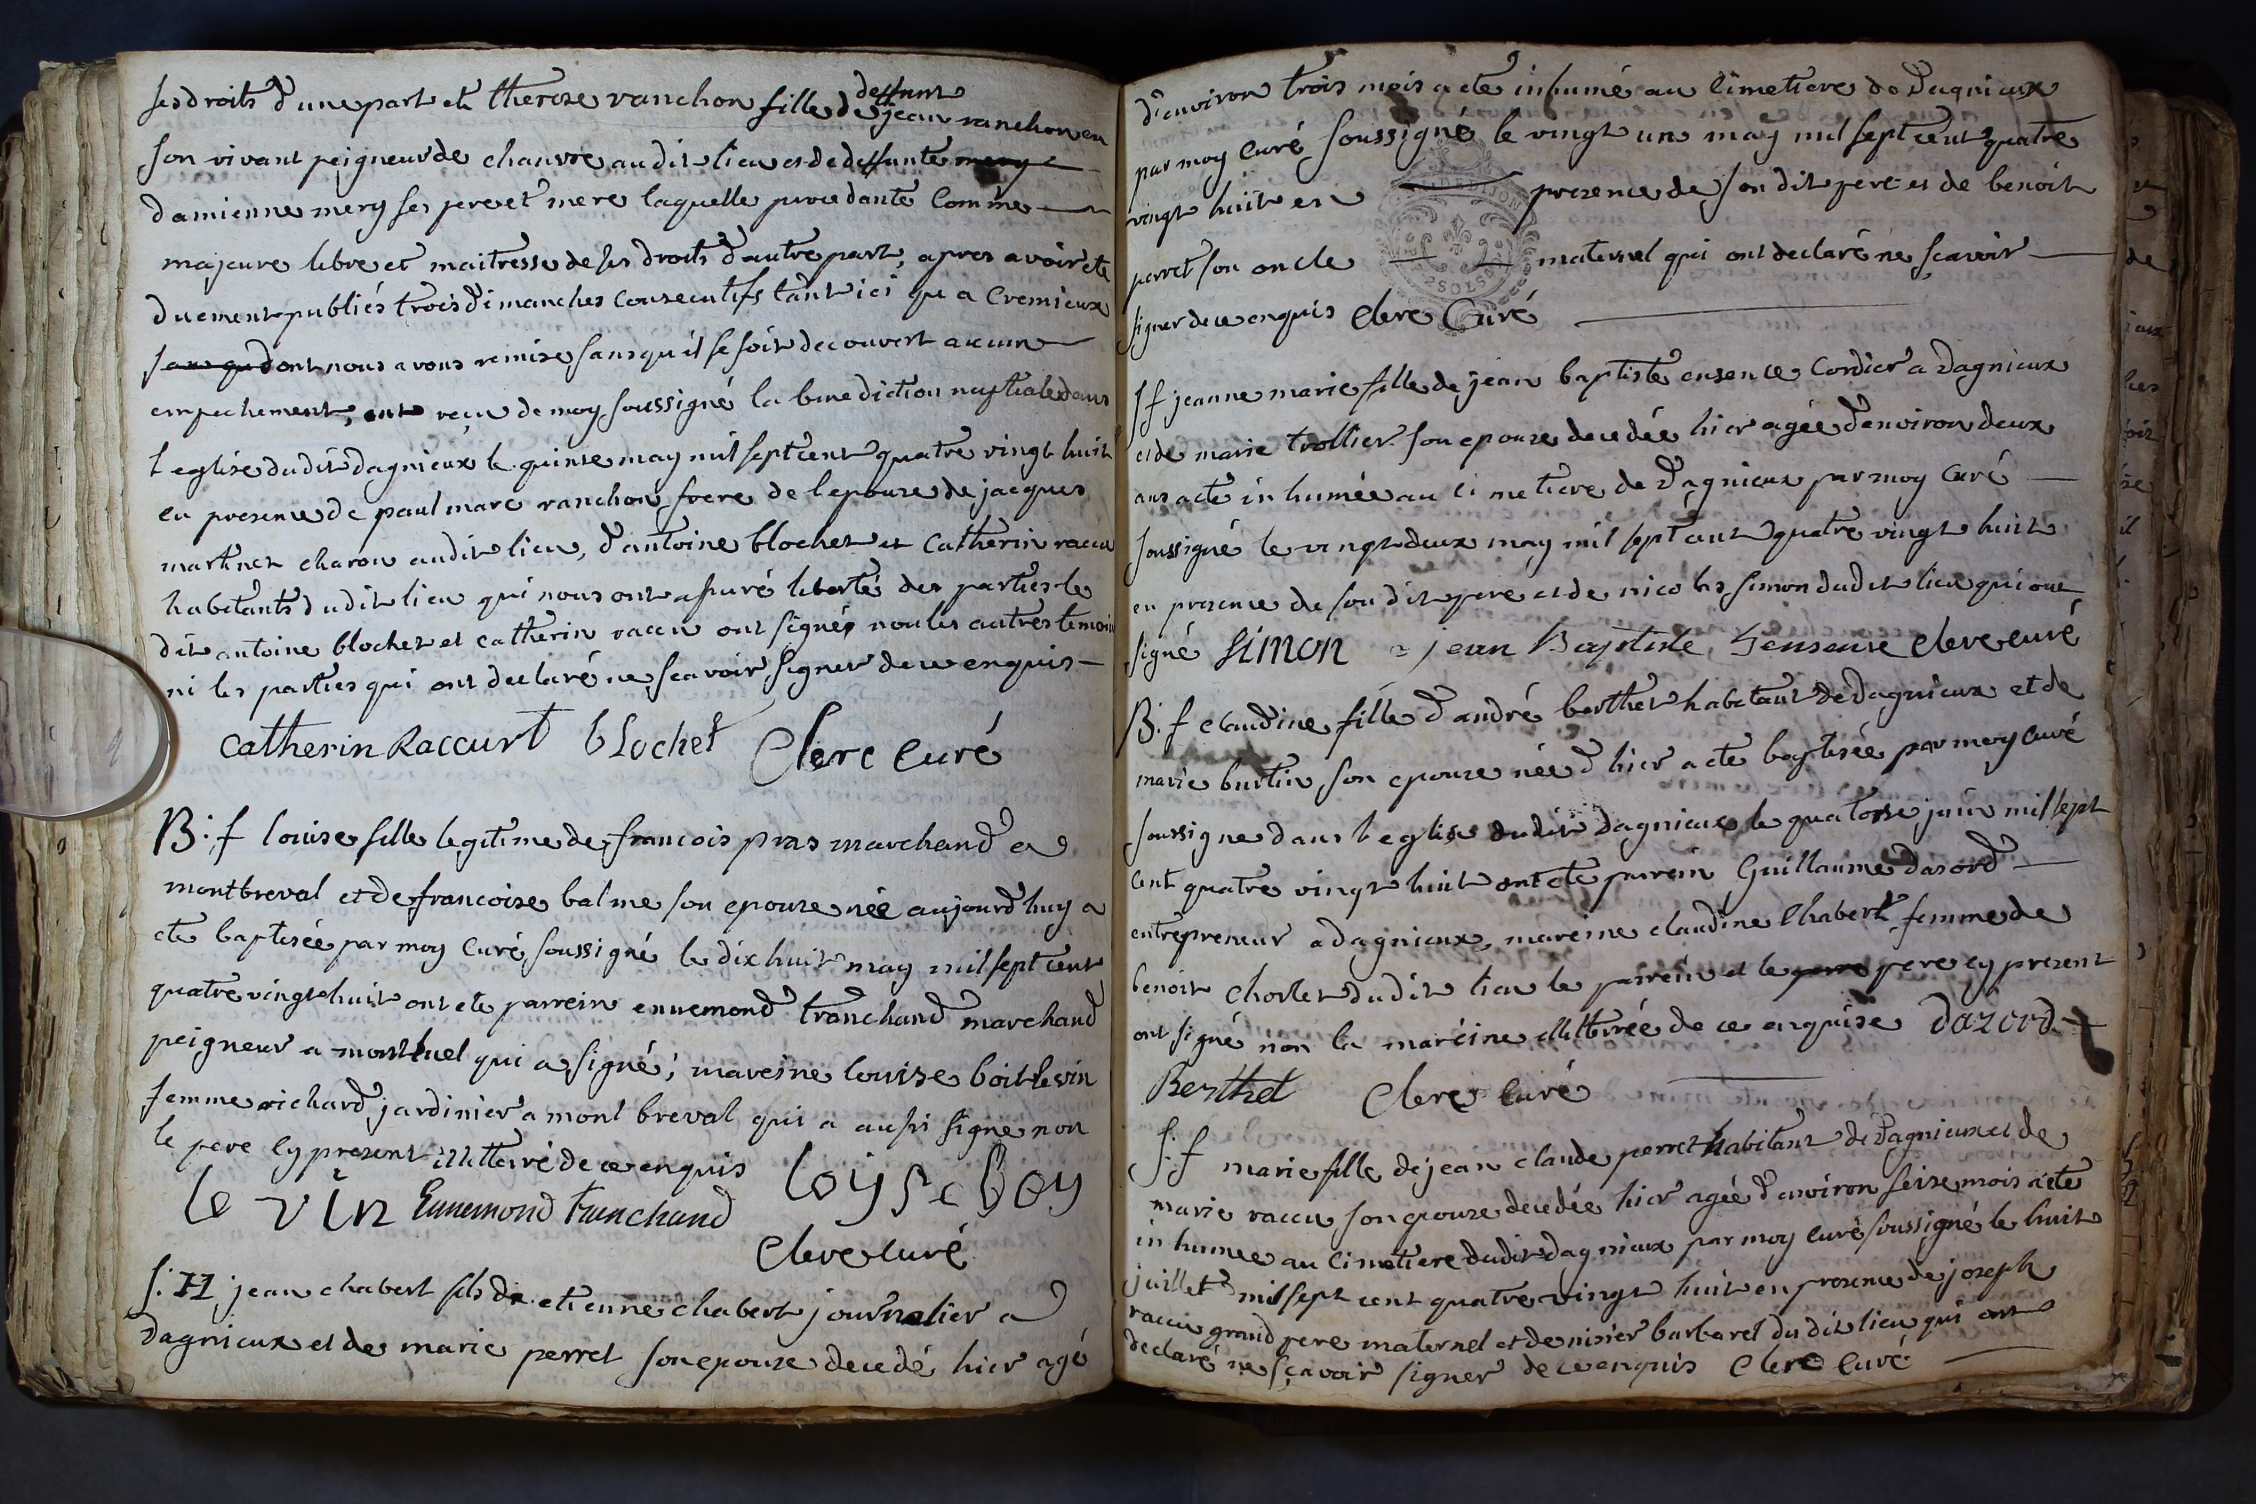 ses droits d'une part et therese ranchon fille de deffunt jean ranchon en
son vivant peigneur de chanvre audit lieu et de deffunte mery
damienne mery ses pere et mere laquelle procedante comme
majeure libre et maitresse de ses droits d'autre part, apres avoir ete
duement publiés trois dimanches consecutifs tant ici qu'a Cremieux
sans qu dont nous avons remise sans qu'il se soit decouvert aucun
empechement, ont reçu de moy soussigné la benediction nuptiale dans
l'eglise dudit dagnieux le quinse may mil sept cent quatre vingt huit
en presence de paul marc ranchon frere de l'epouse de jacques
martinet charon audit lieu, d'antoine blochet et Catherin raccu
habitants dudit lieu qui nous ont assuré liberté des parties le
dit antoine blochet et catherin raccu ont signés non les autres temoin
ni les parties qui ont declaré ne scavoir signer de ce enquis
catherin Raccurt blochet Clerc Curé
B: f louise fille legitime de francois pras marchand a
montbreval et de francoise balme son epouse née aujourd'huy a
ete baptisée par moy Curé soussigné le dix huit may mil sept cent
quatre vingt huit ont ete parrein ennemond tranchand marchand
peigneur a montluel qui a signé; mareine louise boit le vin
femme richard jardinier a mont breval qui a aussi signe non
le pere cy present illitteré de ce enquis loyse boy
le vin Ennemond tranchand
Clerc curé
S. H jean chabert fils de etienne chabert journalier a
dagnieux et de marie perret son epouse decedé hier agé
d'environ trois mois a ete inhumé au Cimetiere de Dagnieux
par moy curé soussigné le vingt un may mil sept cent quatre
vingt huit en presence de son dit pere et de benoit
perret son oncle maternel qui ont declaré ne scavoir
signer de ce enquis Clerc Curé
S f jeanne marie fille de jean baptiste ensence Cordier a Dagnieux
et de marie trollier son epouse decedée hier agée d'environ deux
ans a ete inhumée au Cimetiere de Dagnieux par moy Curé
soussigné le vingt deux may mil sept cent quatre vingt huit
en presence de son dit pere et de nicolas simon dudit lieu qui ont
signé simon jean Baptiste Clerc curé
B: f claudine fille d'andré berthet habitant de Dagnieux et de
marie burtin son epouse née d'hier a ete baptisée par moy curé
soussigne dans l'eglise dudit dagnieux le quatorse juin mil sept
cent quatre vingt huit ont ete parrein Guillaume dasord
entrepreneur a dagnieux, mareine claudine Chabert femme de
benoit chorlet dudit lieu le parrein et le pere pere cy present
ont signé non la mareine illitterée de ce enquise dazord
Berthet Clerc Curé
S: f marie fille de jean claude perret habitant de Dagnieux et de
marie raccu son epouse decedée hier agée d'environ seise mois a ete
inhumee au Cimetiere dudit dagnieux par moy curé soussigné le huit
juillet mil sept cent quatre vingt huit en presence de joseph
raccu grand pere maternel et de nisier barbaret dudit lieu qui ont
declaré ne sçavoir signer de ce enquis Clerc Curé